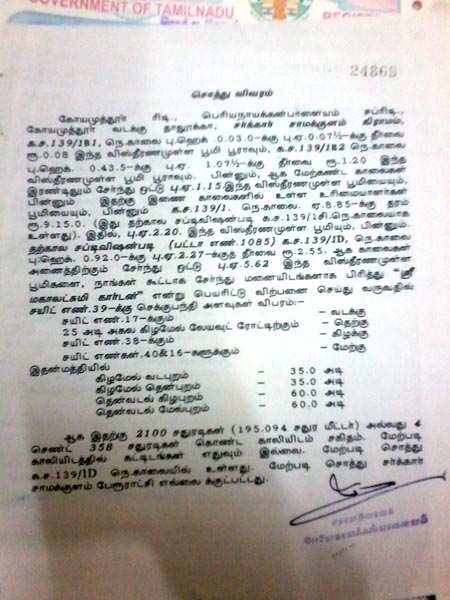 GOVERNMENT OF TAMILNADU
24869
சொத்து விவரம்
கோயமுத்தூர் ரிடி., பெரியநாயக்கன்பாளையம் சப்ரிடி.,
கோயமுத்தூர் வடக்கு தாலூக்கா, சர்க்கார் சாமக்குளம் கிராமம்,
க.ச.139/1B1, நெ.காலை பு.ஹெக். 0.03.0-க்கு பு.ஏ.0.07½-க்கு தீர்வை
ரூ.0.08 இந்த விஸ்தீரணமுள்ள பூமி பூராவும், க.ச.139/1B2 நெ.காலை
பு.ஹெக். 0.43.5-க்கு பு.ஏ. 1.07½-க்கு தீர்வை ரூ.1.20 இந்த
விஸ்தீரணமுள்ள பூமி பூராவும், பின்னும், ஆக மேற்கண்ட காலைகள்
இரண்டிதும் சேர்ந்து ஒட்டு பு.ஏ.1.15 இந்த விஸ்தீரணமுள்ள பூமியையும்,
பின்னும் இதற்கு இணை காலைகளில் உள்ள உரிமையானகள்
பூமியையும், பின்னும் க.ச.139/1, நெ.காலை. ஏ.8.85-க்கு தரம்
ரூ.9.15.0. (இது தற்கால சப்டிவிஷன்படி க.ச.139/1சி.நெ.காலையாக
உள்ளது). இதில், பு.ஏ.2.20. இந்த விஸ்தீரணமுள்ள பூமியையும்.
தற்கால சப்டிவிஷன்படி (பட்டா எண்.1085) க.ச.139/1D, நெ.காலை,
பு.ஹெக். 0.92.0-க்கு பு.ஏ.2.27-க்குத் தீர்வை ரூ.2.55. ஆக காலைகள்
அனைத்திற்கும் சேர்ந்து ஒட்டு பு.ஏ.5.62 இந்த விஸ்தீரணமுள்ள
பூமிகளை, நாங்கள் கூட்டாக சேர்ந்து மனையிடங்களாக பிரித்து "ஸ்ரீ
மகாலட்சுமி கார்டன்" என்று பெயரிட்டு விற்பனை செய்து வருவதில்
சயிட் எண்.39-க்கு செக்குபந்தி அளவுகள் விபரம்:-
சயிட் எண்.17-க்கும் - வடக்கு
25 அடி அகல கிழமேல் லேயவுட் ரோட்டிற்கும் - தெற்கு
சயிட் எண்.38-க்கும் - கிழக்கு
சயிட் எண்கள்.40&16-களுக்கும் - மேற்கு
இதன்மத்தியில்
கிழமேல் வடபுறம் - 35.0 அடி
கிழமேல் தென்புறம் - 35.0 அடி
தென்வடல் கிழபுறம் - 60.0 அடி
தென்வடல் மேல்புறம் - 60.0 அடி
ஆக இதற்கு 2100 சதுரடிகள் (195.094 சதுர மீட்டர்) அல்லது 4
செண்ட் 358 சதுரடிகள் கொண்ட காலியிடம் சகிதம். மேற்படி
காலியிடத்தில் கட்டிடங்கள் எதுவும் இல்லை. மேற்படி சொத்து
க.ச.139/1D நெ.காலையில் உள்ளது. மேற்படி சொத்து சர்க்கார்
சாமக்குளம் பேரூராட்சி எல்லைக்குட்பட்டது.